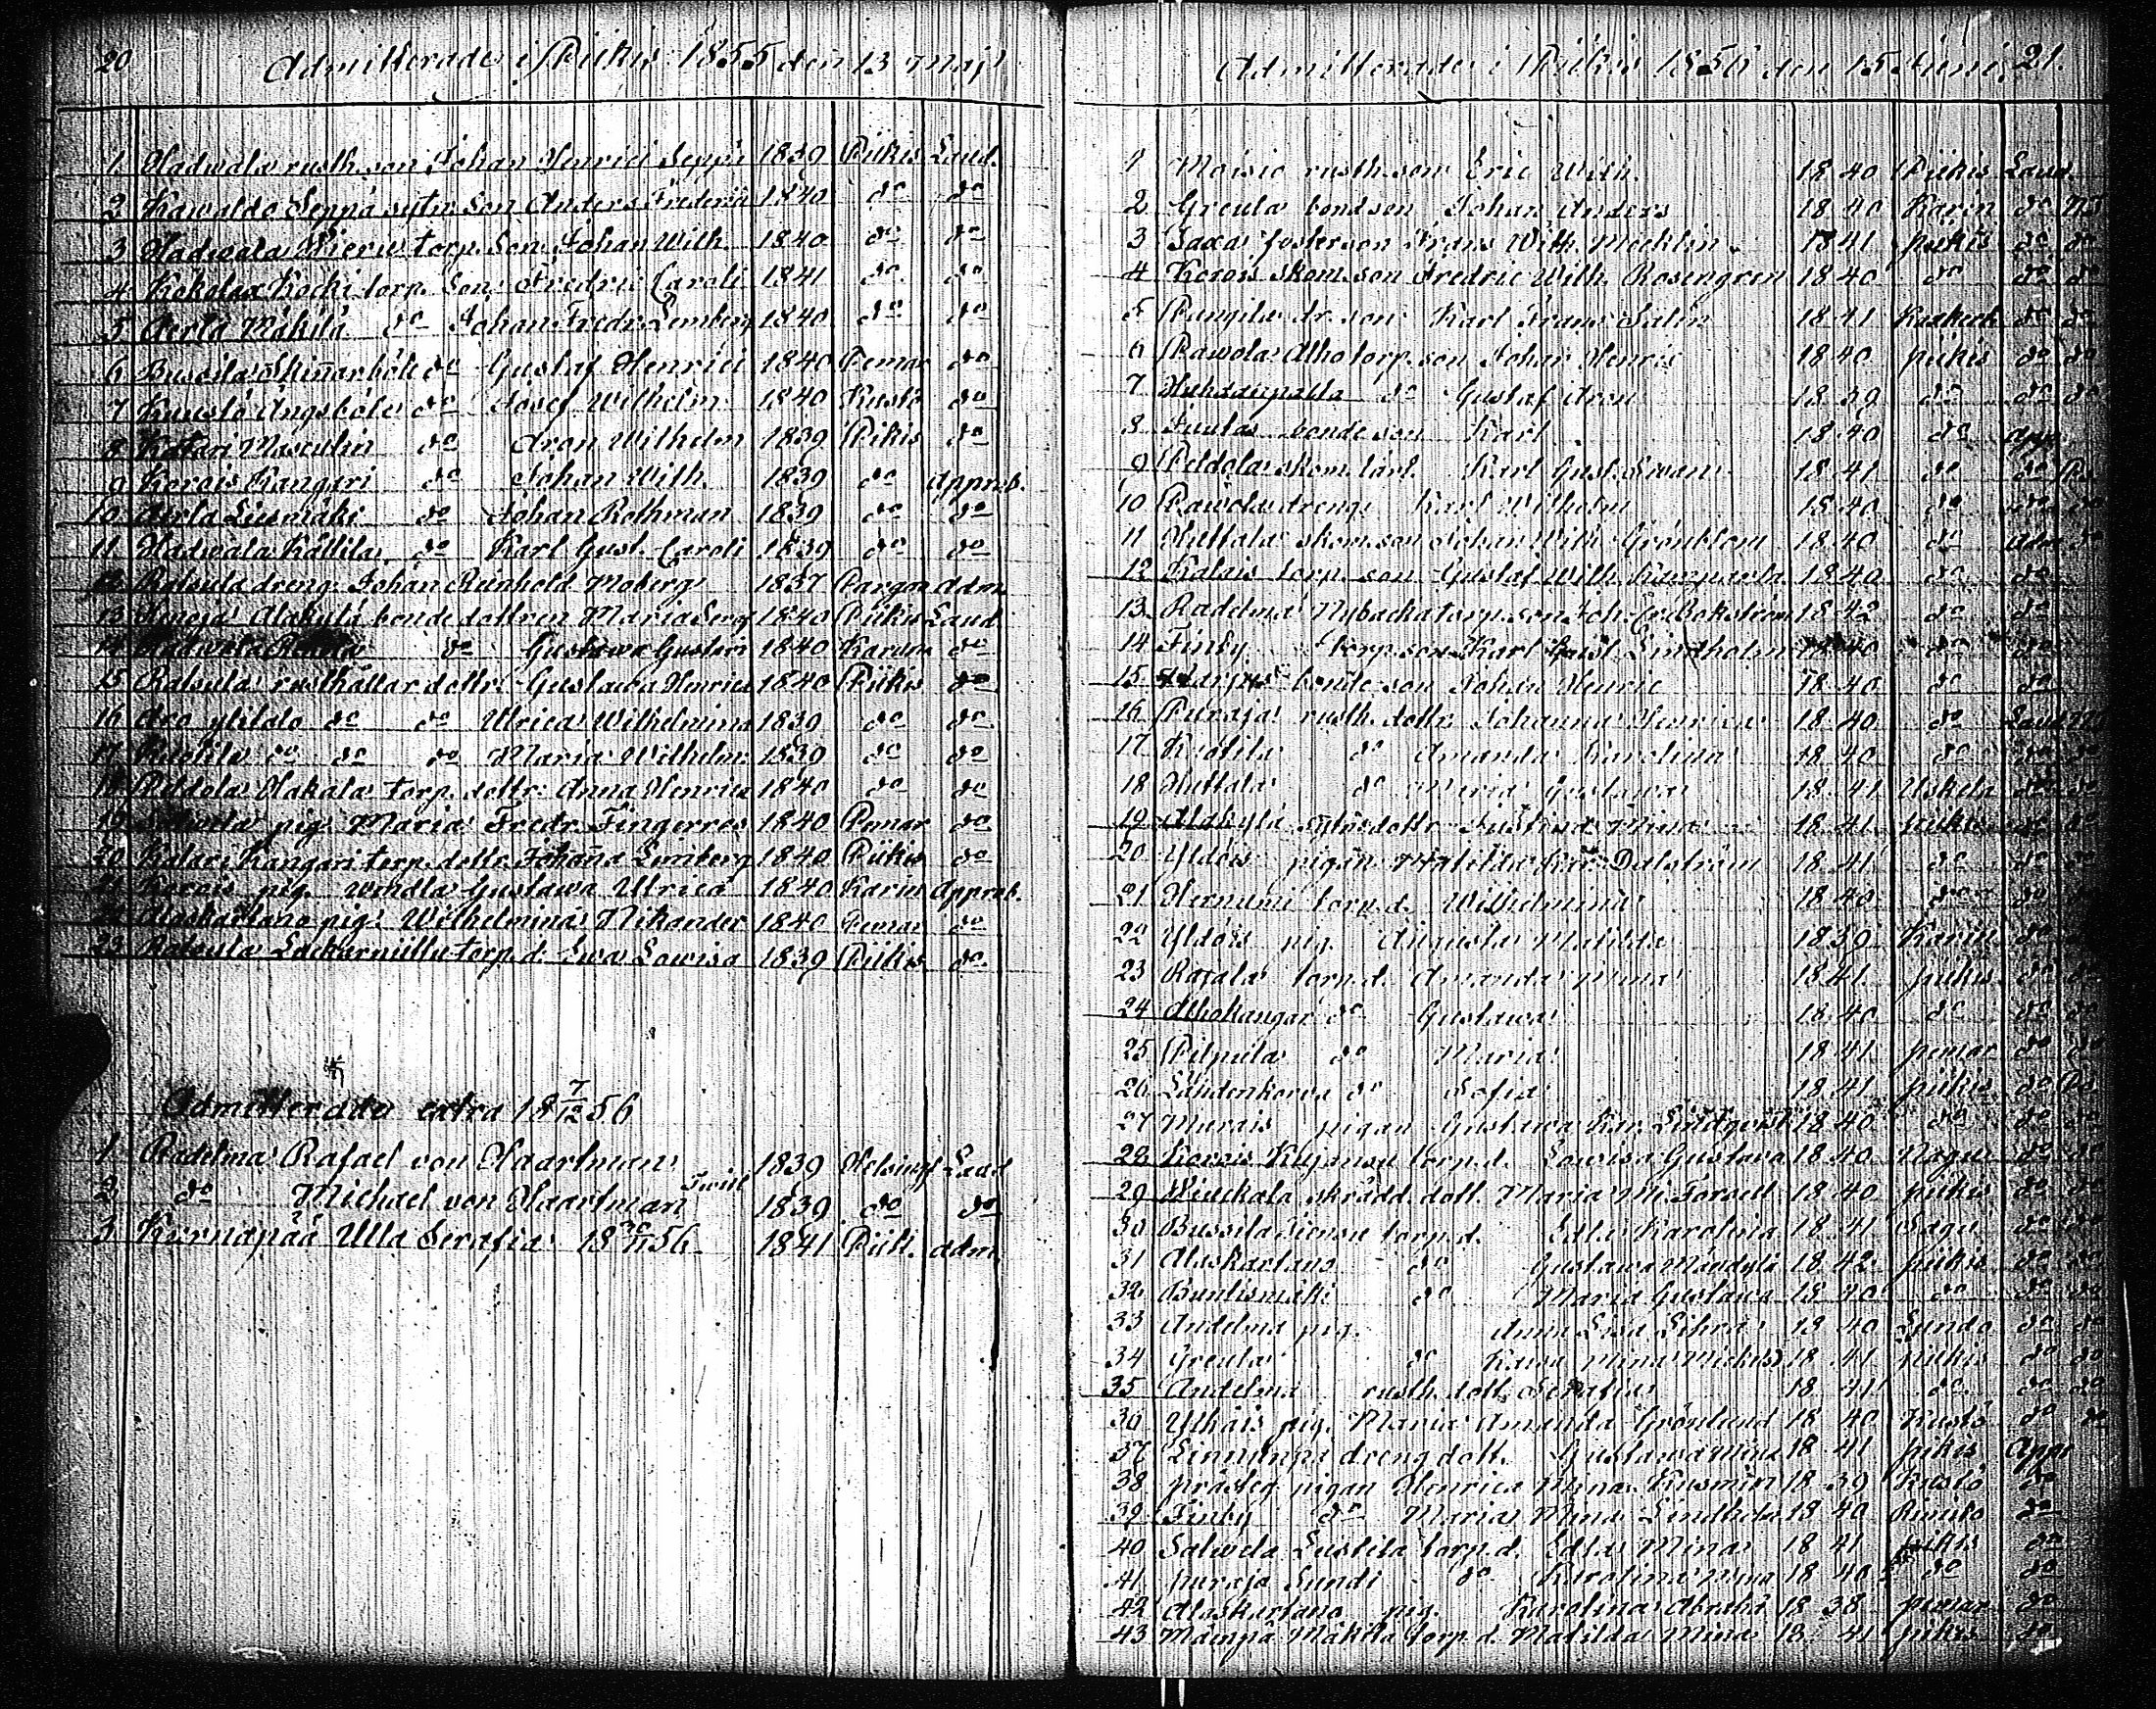 20 Admitterade i Piikis 1855 den 13 Maj
1 Hadvala rusth. son Johan Henrici Seppä 1839 Piikis Laud.
2 Kawaldo Seppä sytn. Son Anders Frederici 1840 do do
3 Hadvala torp. Son Johan Wilh. 1840 do do
4 Kekola Kochi torp. Son Fredric Caroli 1841 do do
5 Aerla Mäkilä do Johan Fredr. Lemberg 1840 do do
6 Bussila Skinnarböle do Gustaf Henrici 1840 Pemar do
7 Kuustö Ängsböle do Josef Wilhelm 1840 Kustö do
8 Katari Masculin do Aron Wilhelm 1839 Piikis do
9 Kerois Kangari do Johan Wilh. 1839 do Approb.
10 Aerla Liesmäki do Johan Rothman 1839 do do
11 Hadvala Källila do Karl Gust. Caroli 1839 do do
12 Raksula dreng Johan Reinhold Moberg 1837 Pargas Adm
13 Alakylä bonde dottren Maria Serg 1840 Piikis Laud
14 Hadvala do Gustawa Gustavi 1840 Karuna do
15 Raksula rusthållar dottr. Gustava Henrica 1840 Piikis do
16 Aro ylitalo do do Ulrica Wilhelmina 1839 do do
17 do do do Maria Wilhelm. 1839 do do
18 Peldola Hakala torp. dottr. Anna Henrica 1840 do do
19 pig. Maria Fredr. Fingerroos 1840 Pemar do
20 Katari Kangari torp. dottr. Johanna Lemberg 1840 Piikis do
21 Kerois pig. Gustawa Ulrica 1840 Karin Approb.
22 Alaskartano pig. Wilhelmina Nikander 1840 Pemar do
23 Raksula torp. d. Ewa Lowisa 1839 Piikis do
Admitterade extra 18 7/12 56
1 Radelma Rafael von Haartman 1839 Helsingf Laud
2 do Michael von Haartman 1839 do do
3 Kärnapää Ulla Serafia 18 30/11 56 1841 Piik. adm.
Admitterade i Piikis 1856 den 15 Juni 21.
1 Moisio rusth. son Eric Wilh. 1840 Piikis Laud.
2 Greula bondson Johan Anders 1840 Karin do
3 Saxa fosterson Frans Wilh. Mecklin 1841 piikis do do
4 Kerois skom. son Fredric Wilh. Rosengren 1840 do do do
5 dr. son Karl Frans Salin 1841 do do
6 Pawola Alho torp. son Johan Henric 1840 piikis do do
7 do Gustaf Aron 1839 do do do
8 bonde son Karl 1840 do app.
9 Peldola skom. lärl. Karl Gust. Swan 1841 do do
10 Pawola dreng Karl Wilhelm 1840 do
11 Huttala skom. son Johan Wilh. Grönblom 1840 do
12 Kalais torp. son Gustaf Wilh. 1840 do do
13 Radelma Nybacka torp. son Joh. Er. Bokström 1842 do do
14 Finby torp. son Karl Gust. Lindholm 1840 do do
15 bonde son Johan Henric 1840 do do
16 Puraja rusth. dottr. Johanna Henrica 1840 do Laud
17 do Amanda Karolina 1840 do do do
18 Huttala do Maria Gustawa 1841 Uskela do do
19 Alakylä dottr. Justina Mina 1841 piikis do do
20 Yldöis pigan Matilda Kar. Dalström 1841 do do do
21 Hernumi torp. d. Wilhelmina 1840 do do
22 Yldöis pig. Augusta Matilda 1839 Karin do
23 Rajala torp. d. Amanda Mina 1841 piikis do
24 Alhokangar do Gustawa 1840 do do do
25 do Maria 1841 pemar do do
26 Landenkorva do Sofia 1841 piikis do
27 Murais pigan Gustawa Kar. Lindqvist 1840 do do do
28 Kerois torp. d. Lowisa Gustava 1840 Nagu do do
29 skrädd. dott. Maria Mi. Forsell 1840 piikis do do
30 Bussila torp. d. Edla Karolina 1841 Sagu do do
31 Alaskartano do Gustawa 1842 piikis do do
32 do Maria Gustawa 1840 do do do
33 Andelma pig. Anna Lisa 1840 Lundo do do
34 Greula do Mina 1841 piikis do do
35 Andelma rusth. dott. Serafia 1841 do do do
36 pig. Maria Amanda Grönlund 1840 Kustö do do
37 dreng dott. Gustawa Mina 1841 piikis App
38 prästeg. pigan Henrica Mina 1839 Kustö do
39 Finby do Maria Mina 1840 Rimito do
40 Salwela torp. d. Edla Mina 1841 piikis do
41 puraja Sundi do Karolina Mina 1840 do do
42 Alaskartano pig. Karolina 1838 pemar do
43 Mäkilä torp. d. Matilda Mina 1841 piikis do